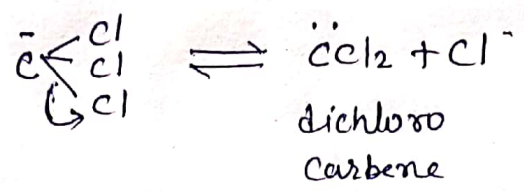 C̄ Cl
Cl
Cl ⇌ C̈Cl2 + Cl⁻
dichloro
Carbene